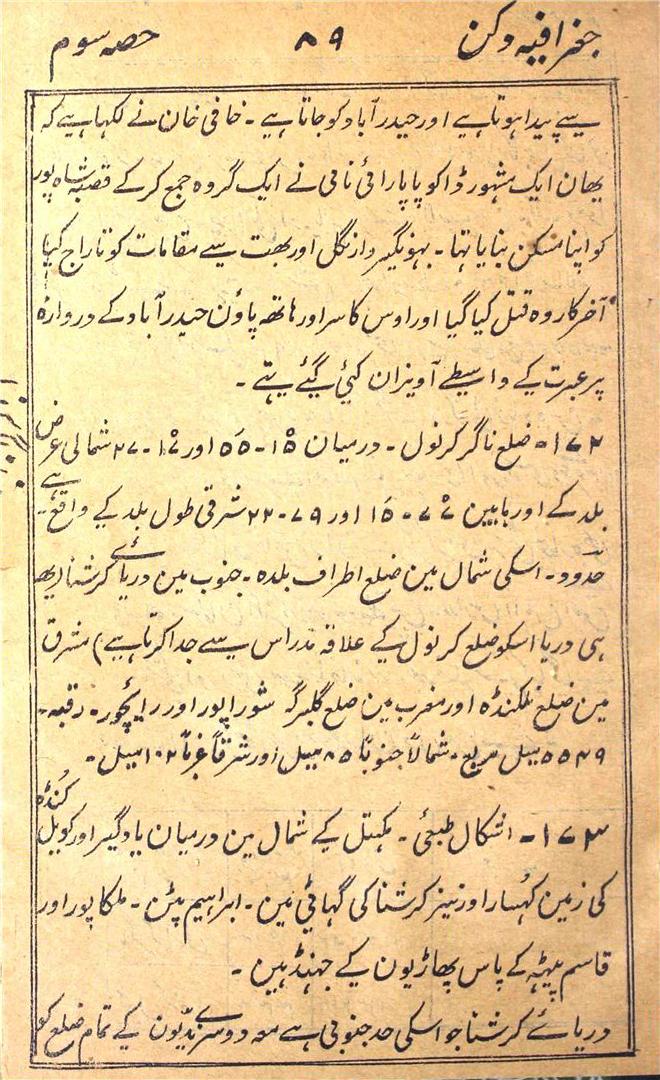 جغرافیہ دکن ۸۹ حصہ سوم
سے پیدا ہوتا ہے اور حیدرآباد کو جاتا ہے ۔ خافی خان نے لکہا ہے کہ
یہان ایک مشہور ڈاکو پاپا رائی نامی نے ایک گروہ جمع کر کے قصبہ شاہ پور
کو اپنا مسکن بنایا تہا ۔ بہونگیر وازنگل اور بہت سے مقامات کو تاراج کیا
آخر کار وہ قتل کیا گیا اور اوس کا سر اور ہاتھ پاؤن حیدرآباد کے دروازہ
پر عبرت کے واسطے آویزان کئے گئے تہے ۔
۱۷۲ - ضلع ناگر کرنول ۔ درمیان ۱۵ - ۵۵ اور ۱۷ - ۲۷ شمالی عرض
بلد کے اور مابین ۷۷ - ۱۵ اور ۷۹ - ۲۲ شرقی طول بلد کے واقع ہے ۔
حدود ۔ اسکی شمال مین ضلع اطراف بلدہ ۔ جنوب مین دریائے کرشنا (یہ
ہی دریا اسکو ضلع کرنول کے علاقہ مدراس سے جدا کرتا ہے) مشرق
مین ضلع نلگنڈہ اور مغرب مین ضلع گلبرگہ شوراپور اور رائچور ۔ رقبہ ۔
۵۵۴۹ میل مربع ۔ شمالاً جنوباً ۸۵ میل اور شرقاً غرباً ۱۰۲ میل ۔
۱۷۳ - اشکال طبعی ۔ مکہتل کے شمال مین درمیان یادگیر اور کویل کنڈہ
کی زمین کہسار اور نیز کرشنا کی گہاٹی مین ۔ ابراہیم پٹن ۔ ملکاپور اور
قاسم پیٹہ کے پاس پہاڑیون کے جہنڈ ہین ۔
دریائے کرشنا جو اسکی حد جنوبی ہے معہ دوسرے ندیون کے تمام ضلع کو